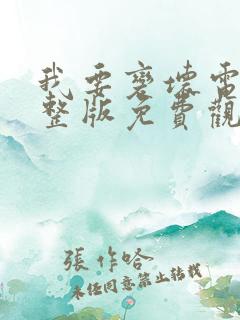 我要变壞電
整版免費觀
張作哈
未经同意禁止转载